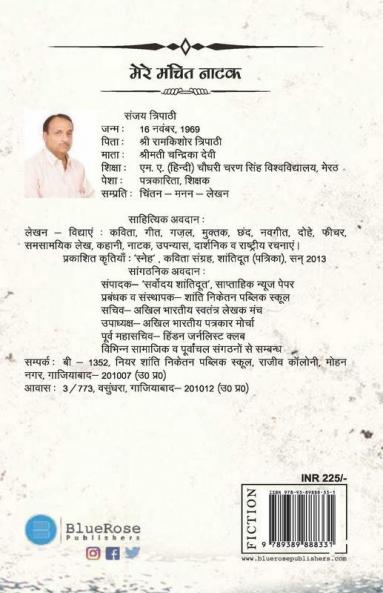 मेरे मंचित नाटक
संजय त्रिपाठी
जन्म : 16 नवंबर, 1969
पिता : श्री रामकिशोर त्रिपाठी
माता : श्रीमती चन्द्रिका देवी
शिक्षा : एम. ए. (हिन्दी) चौधरी चरण सिंह विश्वविद्यालय, मेरठ
पेशा : पत्रकारिता, शिक्षक
सम्प्रति : चिंतन – मनन – लेखन
साहित्यिक अवदान :
लेखन – विद्याएं : कविता, गीत, गज़ल, मुक्तक, छंद, नवगीत, दोहे, फीचर,
समसामयिक लेख, कहानी, नाटक, उपन्यास, दार्शनिक व राष्ट्रीय रचनाएं।
प्रकाशित कृतियाँ : 'स्नेह' , कविता संग्रह, शांतिदूत (पत्रिका), सन् 2013
सांगठनिक अवदान :
संपादक– 'सर्वोदय शांतिदूत', साप्ताहिक न्यूज पेपर
प्रबंधक व संस्थापक– शांति निकेतन पब्लिक स्कूल
सचिव– अखिल भारतीय स्वतंत्र लेखक मंच
उपाध्यक्ष– अखिल भारतीय पत्रकार मोर्चा
पूर्व महासचिव– हिंडन जर्नलिस्ट क्लब
विभिन्न सामाजिक व पूर्वांचल संगठनों से सम्बन्ध
सम्पर्क : बी – 1352, नियर शांति निकेतन पब्लिक स्कूल, राजीव कॉलोनी, मोहन
नगर, गाजियाबाद– 201007 (उ0 प्र0)
आवास : 3/773, वसुंधरा, गाजियाबाद– 201012 (उ0 प्र0)
INR 225/-
ISBN 978-93-89888-33-1
FICTION
9 789389 888331
www.bluerosepublishers.com
BlueRose
Publishers